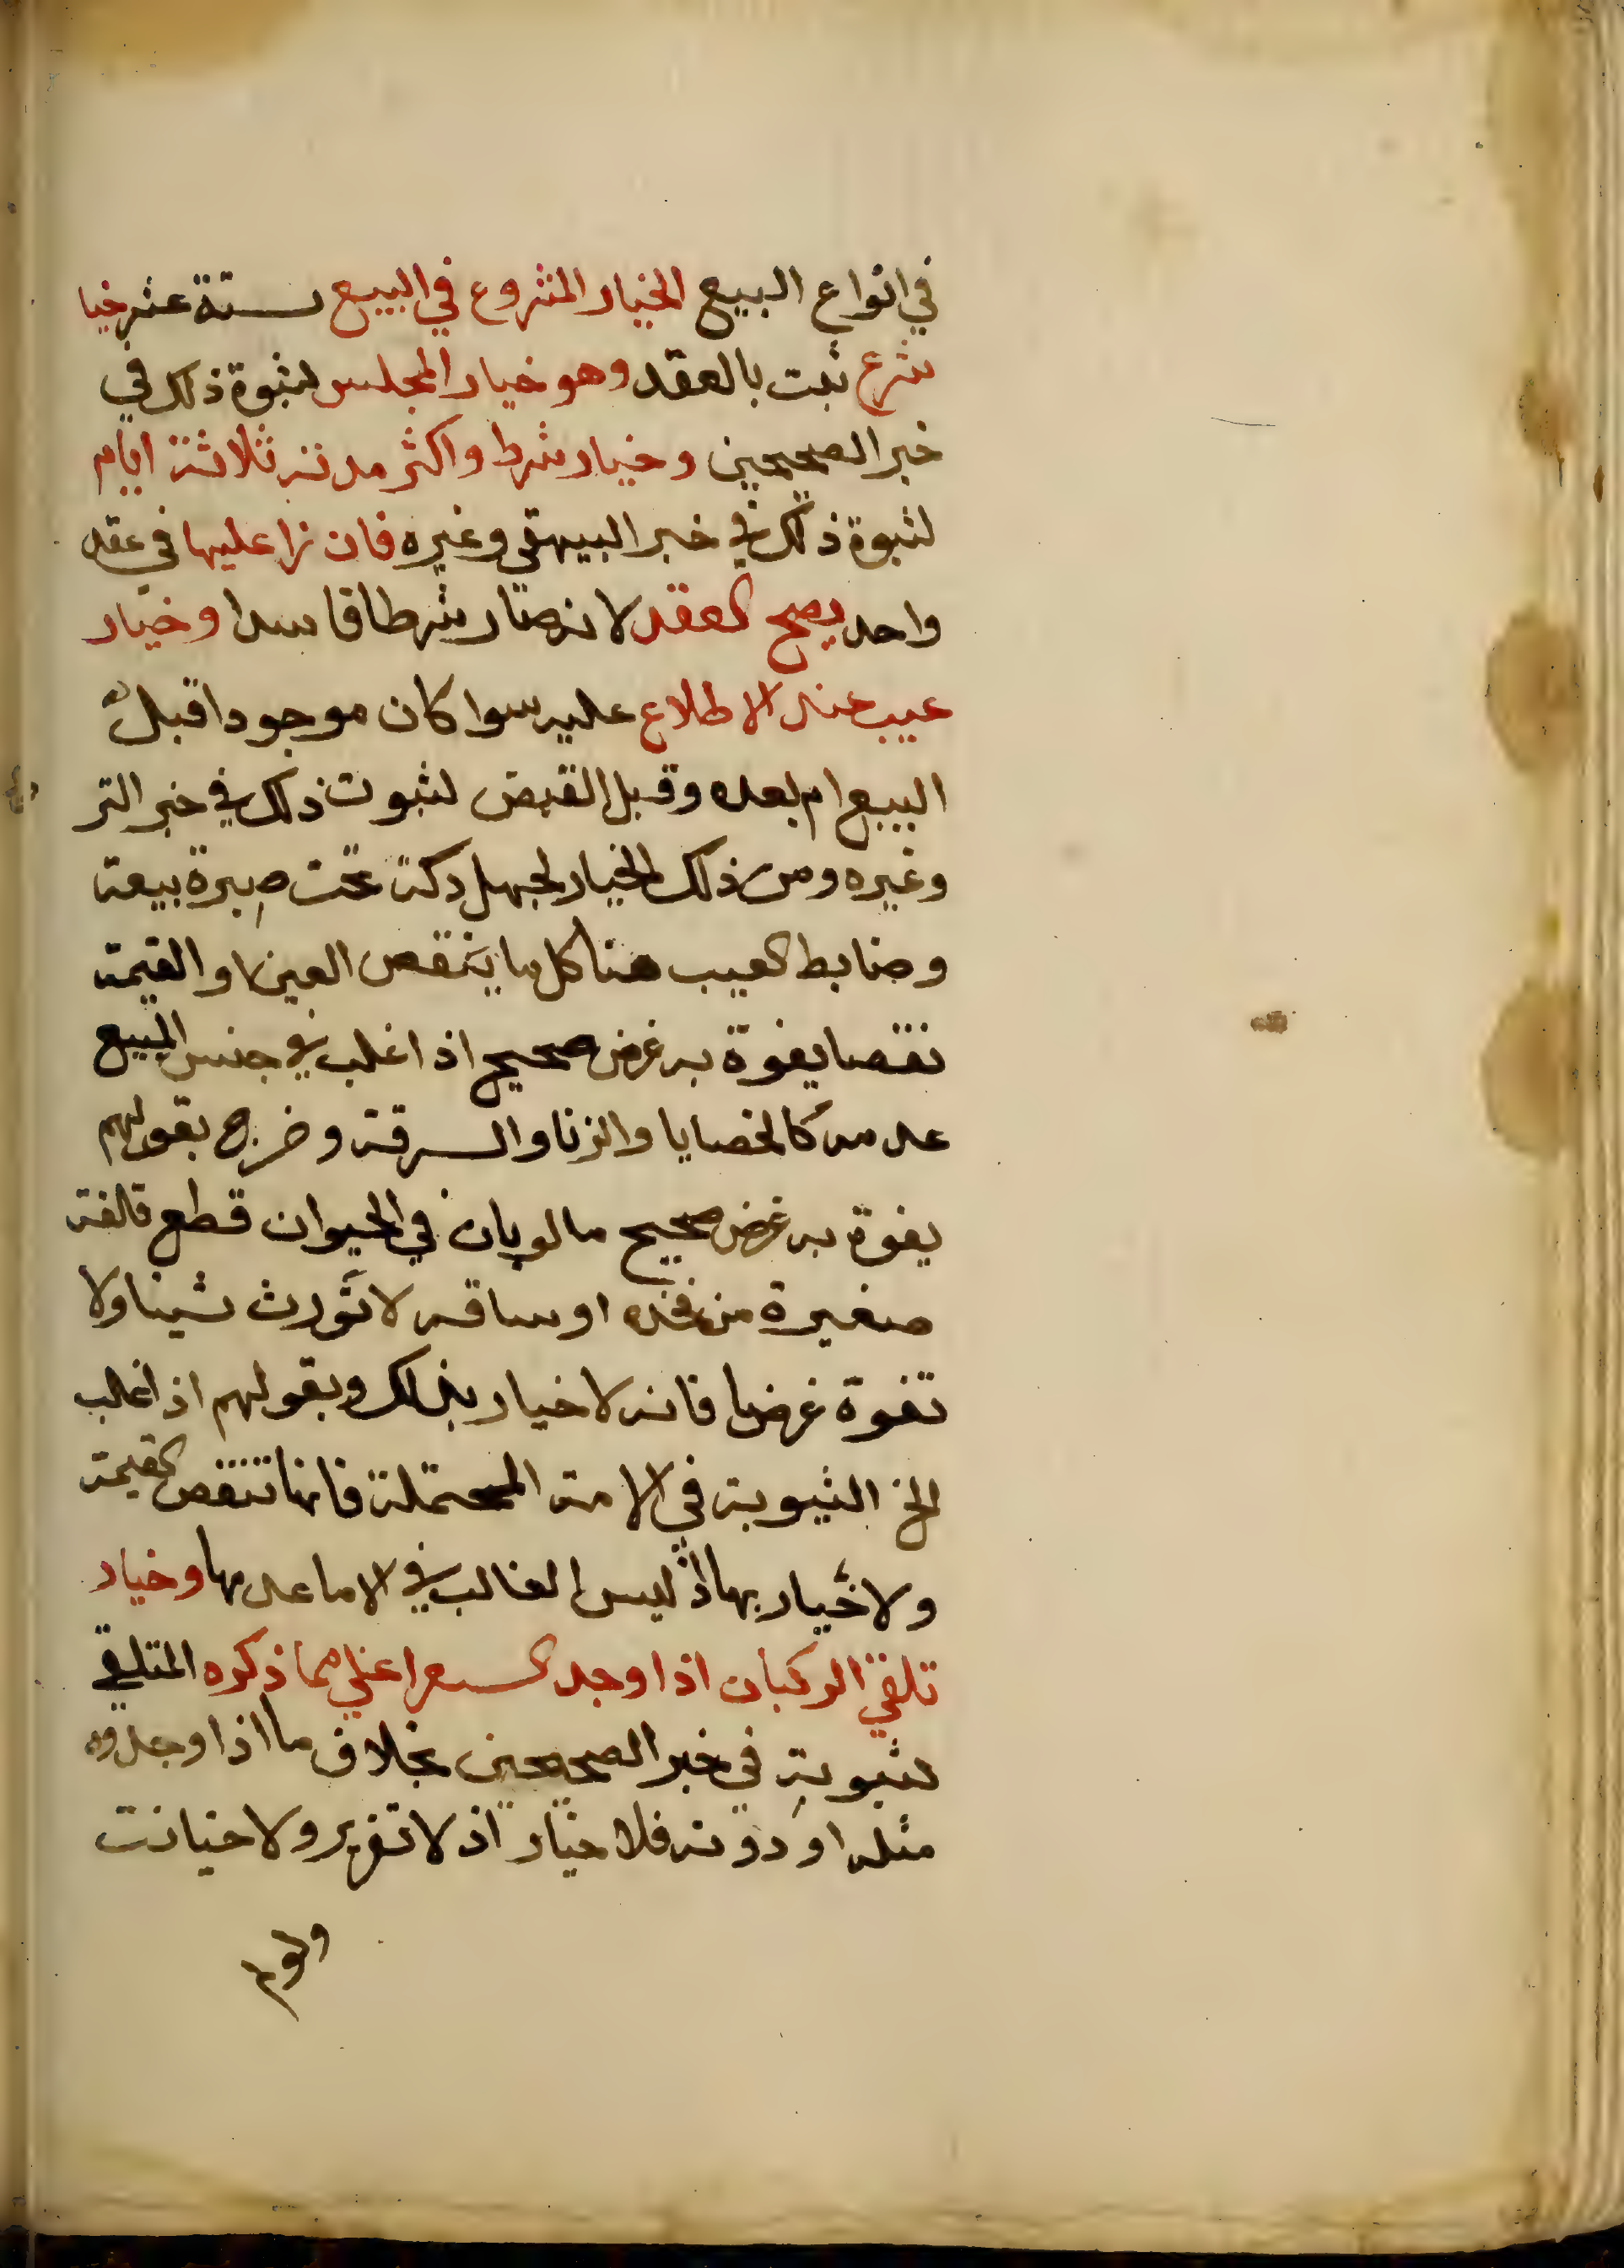 في انواع البيع الخيار المشروع في البيع ستة عشر خيا
شرع ثبت بالعقد وهو خيار المجلس لثبوة ذلك في
خبر الصحيحين وخيار شرط واكثر مدته ثلاثة ايام
لثبوة ذلك في خبر البيهقي وغيره فان زا عليها في عقد
واحد يصح العقد لانه صار شرطا فاسدا وخيار
عيب عند الاطلاع عليه سوا كان موجودا قبل
البيع ام بعده وقبل القبض لثبوت ذلك في خبر التر
وغيره ومن ذلك الخيار لجهل دكة تحت صبرة بيعة
وضابط العيب هنا كل ما ينقص العين او القيمة
نقصا يفوة به غرض صحيح اذا غلب في جنس المبيع
عدمه كالخصايا والزنا والسرقة وخرج بقولهم
يفوة به غرض صحيح ما لو بان في الحيوان قطع فلقة
صغيرة من فخذه او ساقه لا تورث شينا ولا
تفوة غرضا فانه لا خيار بذلك وبقولهم اذا غلب
الخ الثيوبة في الامة المحتملة فانها تنقص القيمة
ولا خيار بها اذ ليس الغالب في الاما عدمها وخيار
تلقي الركبان اذا وجد السعر اغلي مما ذكره المتلقي
لثبوته في خبر الصحيحين بخلاف ما اذا وجدوه
مثله او دونه فلا خيار اذ لا تغرير ولا خيانت
ولو م